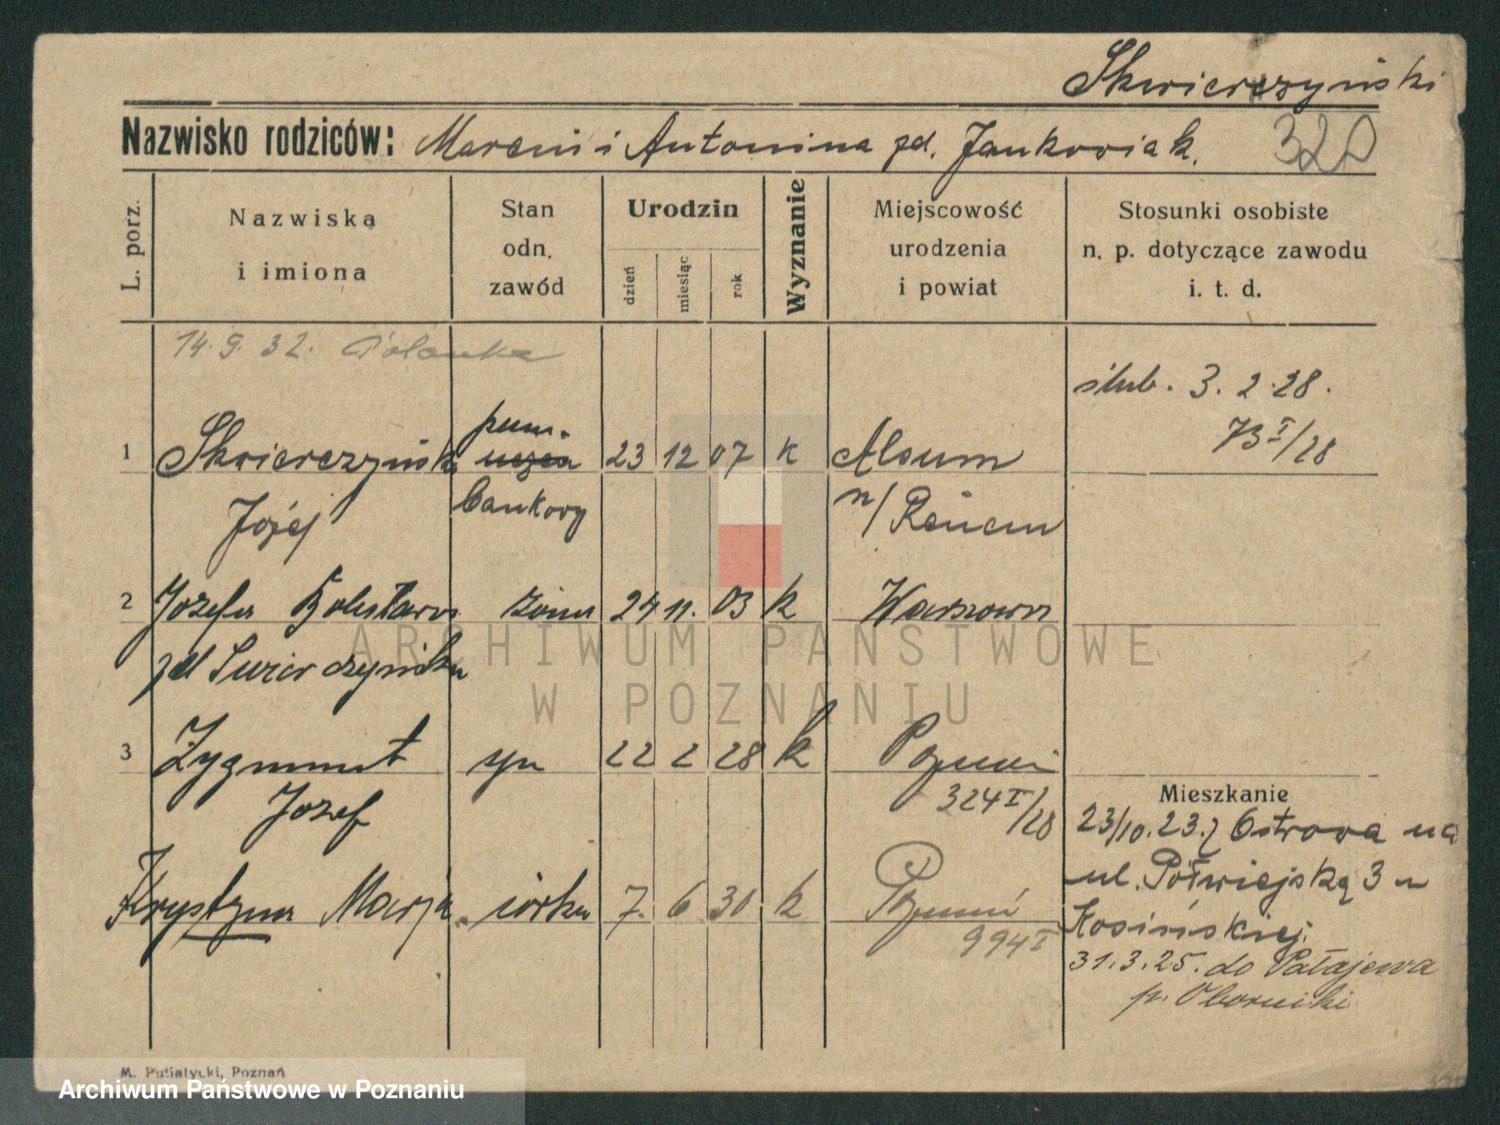 Skwierczyński
Nazwisko rodziców: Marcin i Antonina zd. Jankowiak.
320
L. porz.
Nazwiska
i imiona
Stan
odn.
zawód
Urodzin
dzień
miesiąc
rok
Wyznanie
Miejscowość
urodzenia
i powiat
Stosunki osobiste
n. p. dotyczące zawodu
i. t. d.
14. 9. 32. Polanka
ślub. 3. 2. 28.
73 I/28
1 Skwierczyński uczeń 23 12 07 k Alsum
Józef bankowy n/Renem
2 Józefa żona 24 11. 03 k Warszawa
zd
3 Zygmunt syn 22 2 28 k Poznań
Józef 324 I/28
Krystyna Marja córka 7. 6 30 k Poznań
994 I
Mieszkanie
23/10. 23. z Ostrowa na
ul. Półwiejską 3 u
Kosińskiej.
31. 3. 25. do Pałajewa
p. Oborniki
M. Putiatycki, Poznań
ARCHIWUM PAŃSTWOWE
W POZNANIU
Archiwum Państwowe w Poznaniu